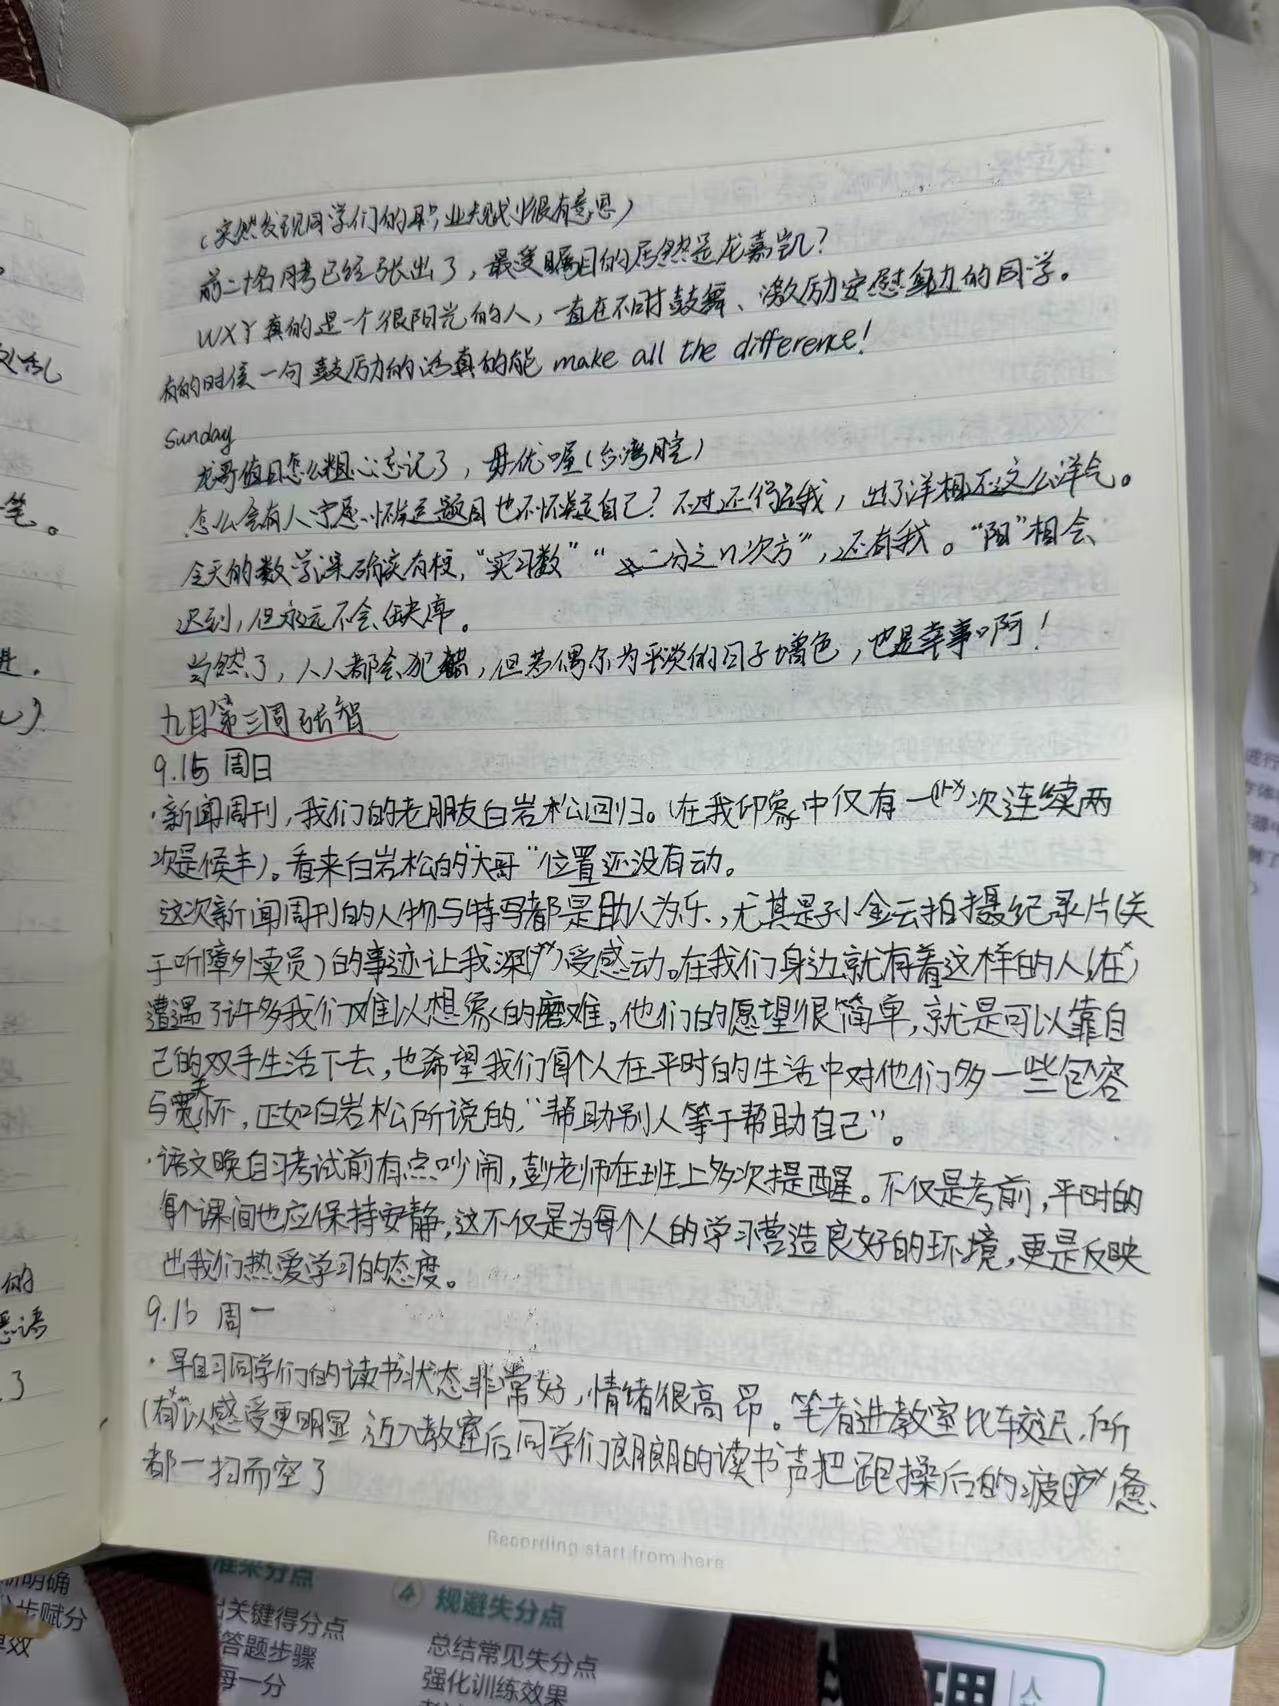 （突然发现同学们的职业规划很有意思）
前二十名月考已经张出了，最受瞩目的居然是龙嘉凯？
WXY真的是一个很阳光的人，一直在不时鼓舞、激励安慰身边的同学。
有的时候一句鼓励的话真的能 make all the difference！
Sunday
龙哥值日怎么粗心忘记了，毋优喔（台湾腔）
怎么会有人宁愿怀疑题目也不怀疑自己？不过还得是我，出了洋相还这么洋气。
今天的数学课确实有梗，“实习数”“二分之n次方”，还有我。“阳”相会
迟到，但永远不会缺席。
当然了，人人都会犯错，但若偶尔为平淡的日子增色，也是幸事啊！
九月第三周 张智
9.15 周日
·新闻周刊，我们的老朋友白岩松回归。（在我印象中仅有一次连续两
次是候丰）。看来白岩松的“大哥”位置还没有动。
这次新闻周刊的人物与特写都是助人为乐，尤其是孙金云拍摄纪录片（关
于听障外卖员）的事迹让我深受感动。在我们身边就有着这样的人（在）
遭遇了许多我们难以想象的磨难。他们的愿望很简单，就是可以靠自
己的双手生活下去，也希望我们每个人在平时的生活中对他们多一些包容
与关怀，正如白岩松所说的，“帮助别人等于帮助自己”。
·语文晚自习考试前有点吵闹，彭老师在班上多次提醒。不仅是考前，平时的
每个课间也应保持安静，这不仅是为每个人的学习营造良好的环境，更是反映
出我们热爱学习的态度。
9.16 周一
·早自习同学们的读书状态非常好，情绪很高昂。笔者进教室比较迟，所
以感受更明显 迈入教室后同学们朗朗的读书声把跑操后的疲惫
都一扫而空了
Recording start from here
准采分点
关键得分点
答题步骤
每一分
4 规避失分点
总结常见失分点
强化训练效果